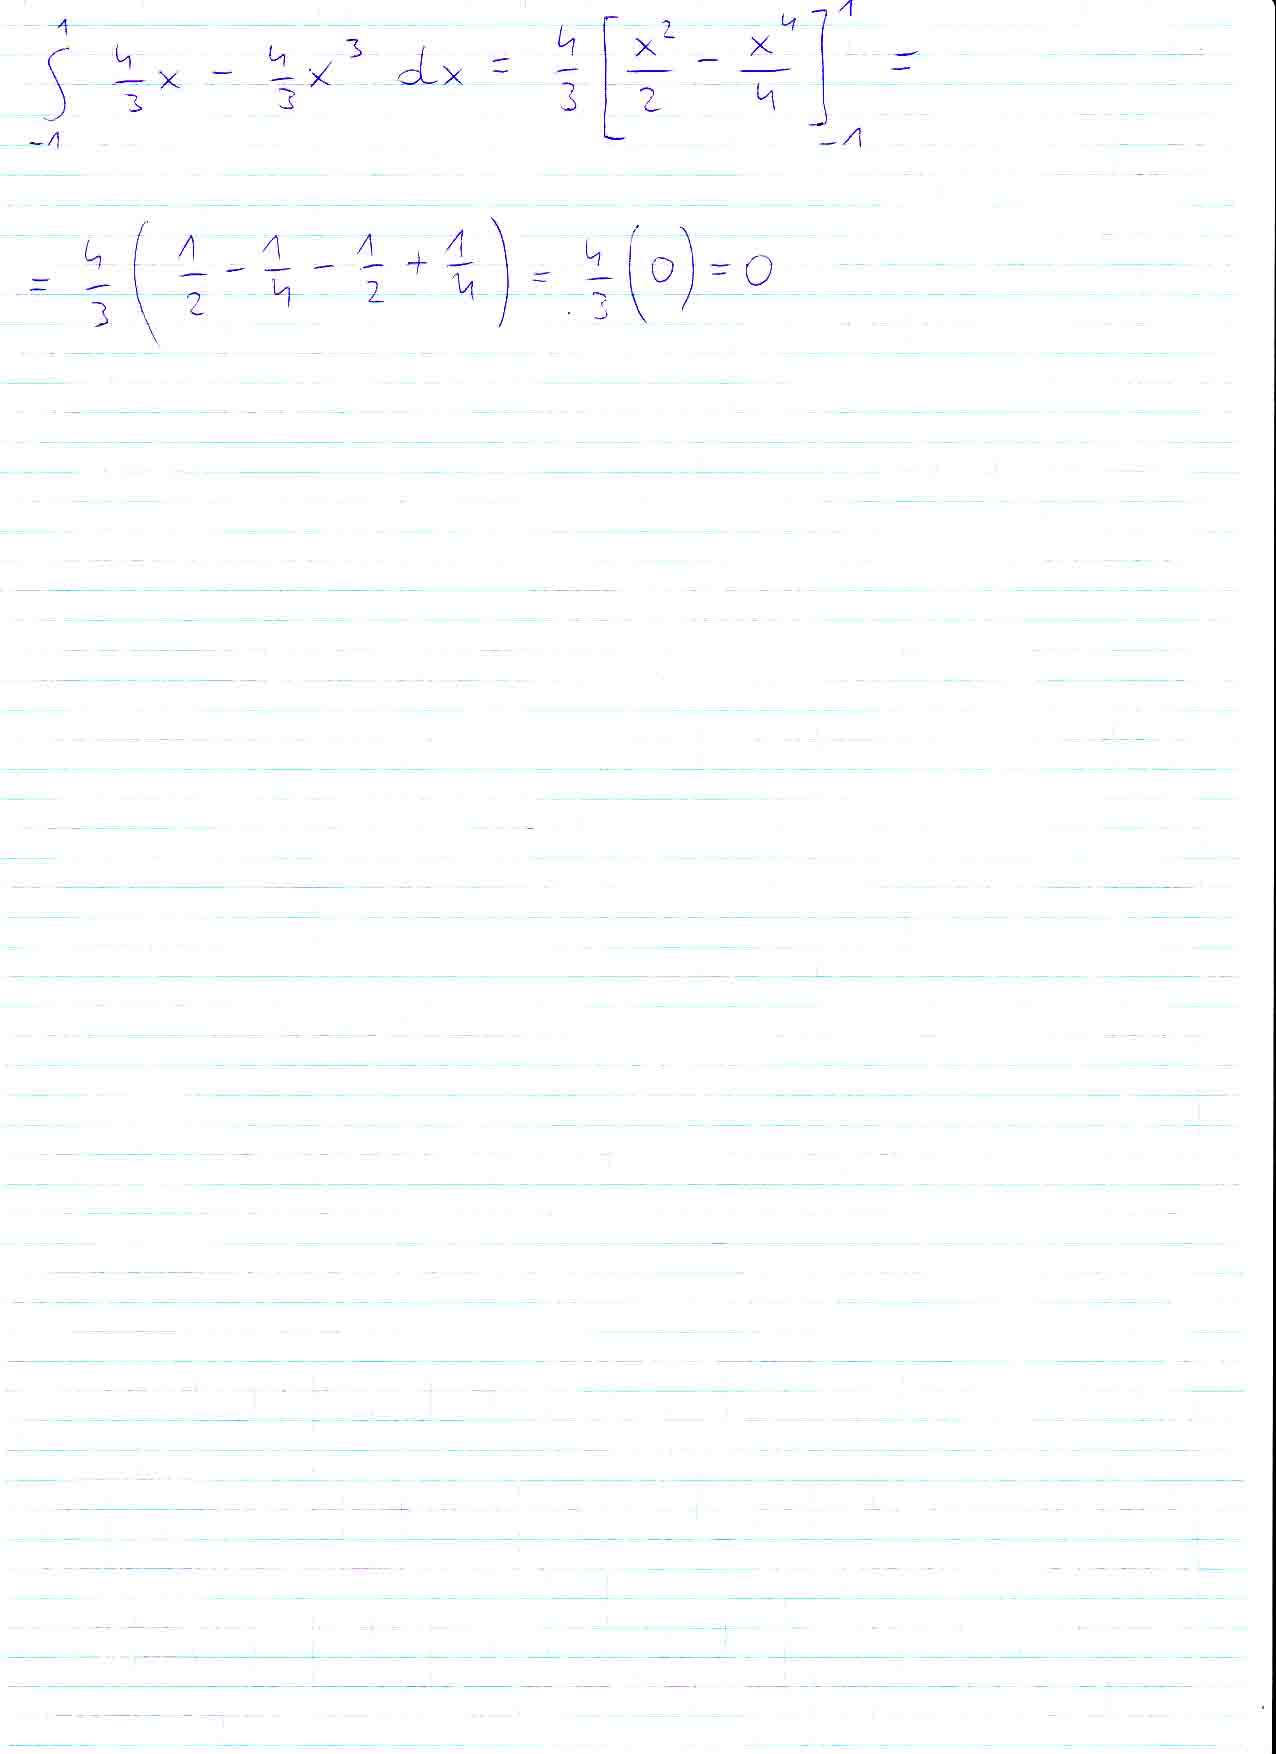 ∫_{-1}^{1} 4/3 x - 4/3 x^3 dx = 4/3 [x^2/2 - x^4/4]_{-1}^{1} =
= 4/3 (1/2 - 1/4 - 1/2 + 1/4) = 4/3 (0) = 0